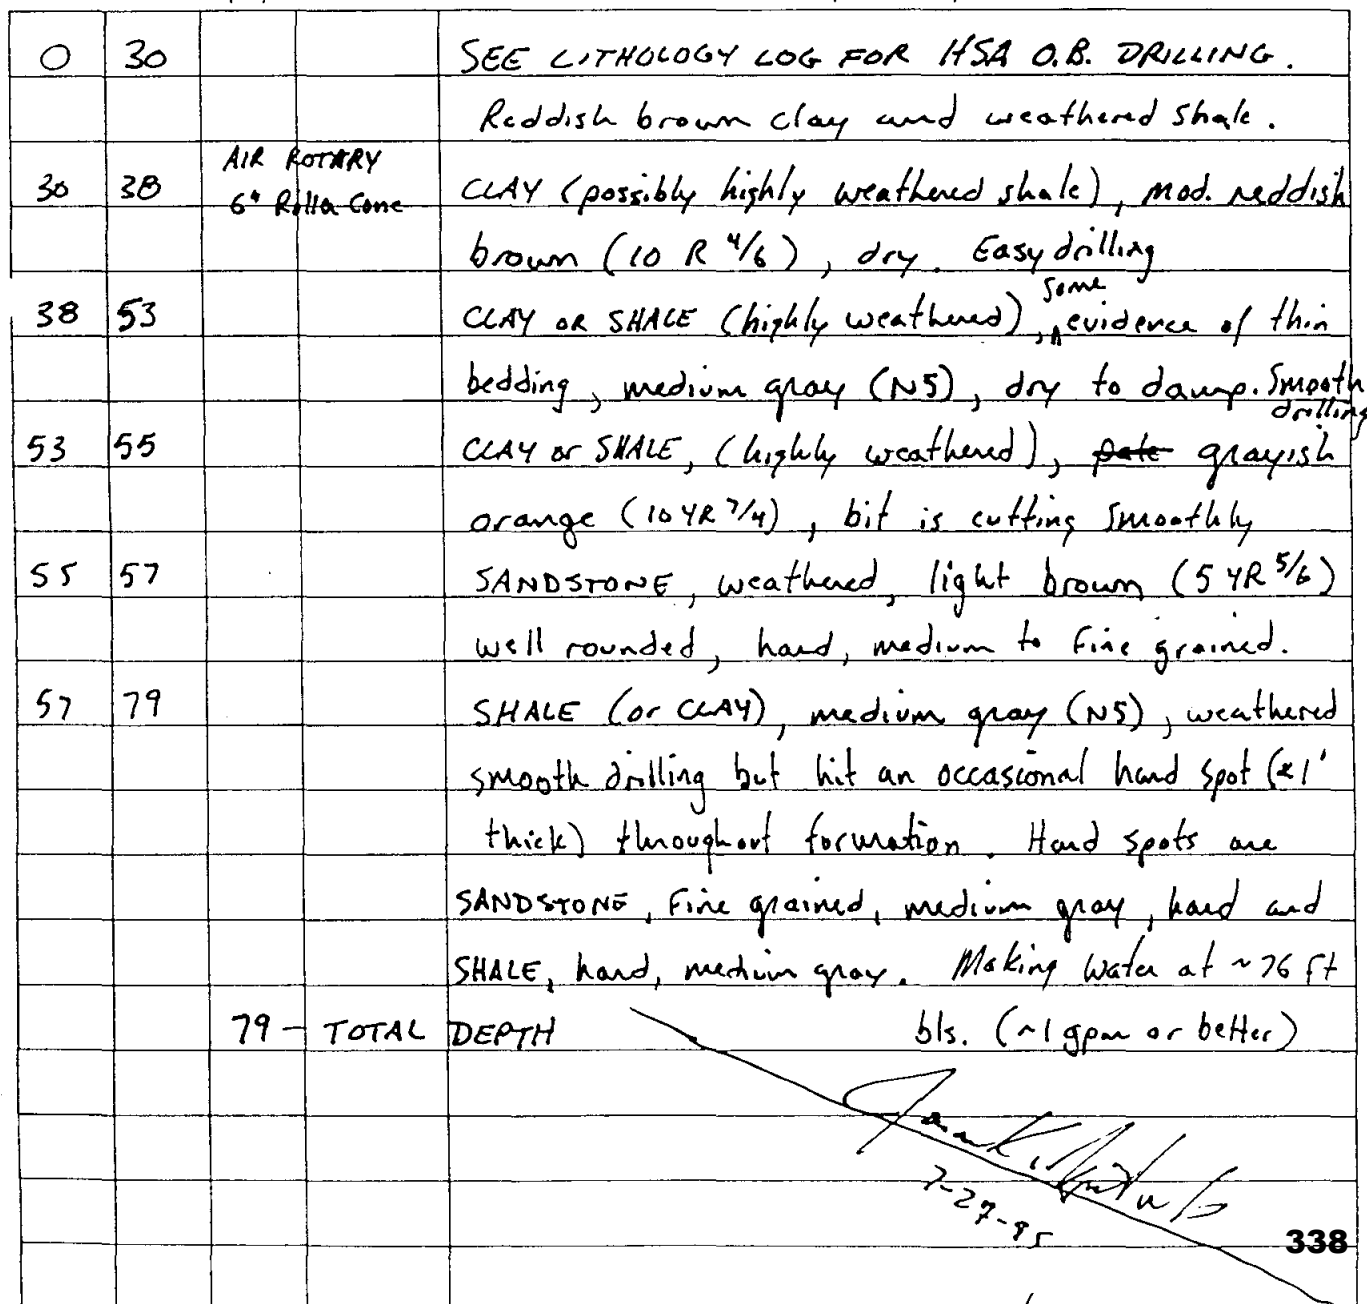 0 30 SEE LITHOLOGY LOG FOR HSA O.B. DRILLING.
Reddish brown clay and weathered shale.
AIR ROTARY
30 38 6" Rolla Cone CLAY (possibly highly weathered shale), mod. reddish
brown (10 R 4/6), dry. Easy drilling
some
38 53 CLAY OR SHALE (highly weathered), evidence of thin
bedding, medium gray (N5), dry to damp. Smooth
drilling
53 55 CLAY or SHALE, (highly weathered), pale grayish
orange (10 YR 7/4), bit is cutting smoothly
55 57 SANDSTONE, weathered, light brown (5 YR 5/6)
well rounded, hard, medium to fine grained.
57 79 SHALE (or CLAY), medium gray (N5), weathered
smooth drilling but hit an occasional hard spot (<1'
thick) throughout formation. Hard spots are
SANDSTONE, fine grained, medium gray, hard and
SHALE, hard, medium gray. Making water at ~76 ft
79 - TOTAL DEPTH bls. (~1 gpm or better)
338